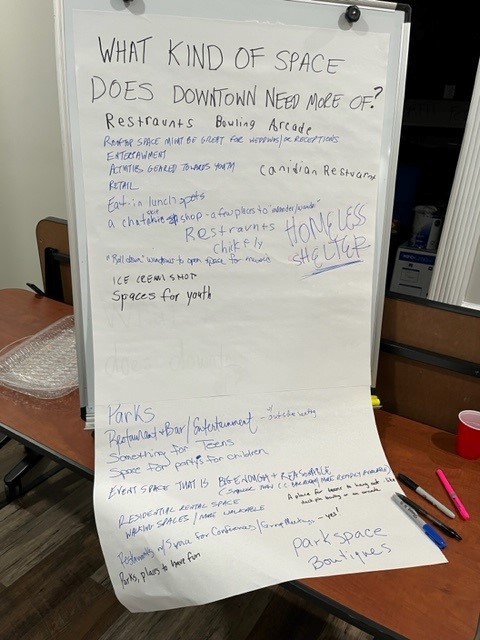 WHAT KIND OF SPACE
DOES DOWNTOWN NEED MORE OF?
Restraunts Bowling Arcade
ROOFTOP SPACE MIGHT BE GREAT FOR WEDDINGS/OR RECEPTIONS
ENTERTAINMENT
ACTIVITIES GEARED TOWARDS YOUTH
Canidian Resturant
RETAIL
Eat-in lunch spots
a shop - a few places to "meander/wander"
Restraunts
chikfely
HOMELESS
SHELTER
"Roll down" windows to open space for
ICE CREAM SHOP
Spaces for youth
Parks
Restaurant + Bar/Entertainment - outside
Something for Teens
Space for partys for children
EVENT SPACE THAT IS BIG ENOUGH + REASONABLE
MORE READILY AVAILABLE)
A place for teens to hang out like
RESIDENTIAL RENTAL SPACE
WALKING SPACES / MORE WALKABLE
Restaurants w/ Space for Conferences/Group Meetings - yes!
Parks, places to have fun
park space
Boutiques